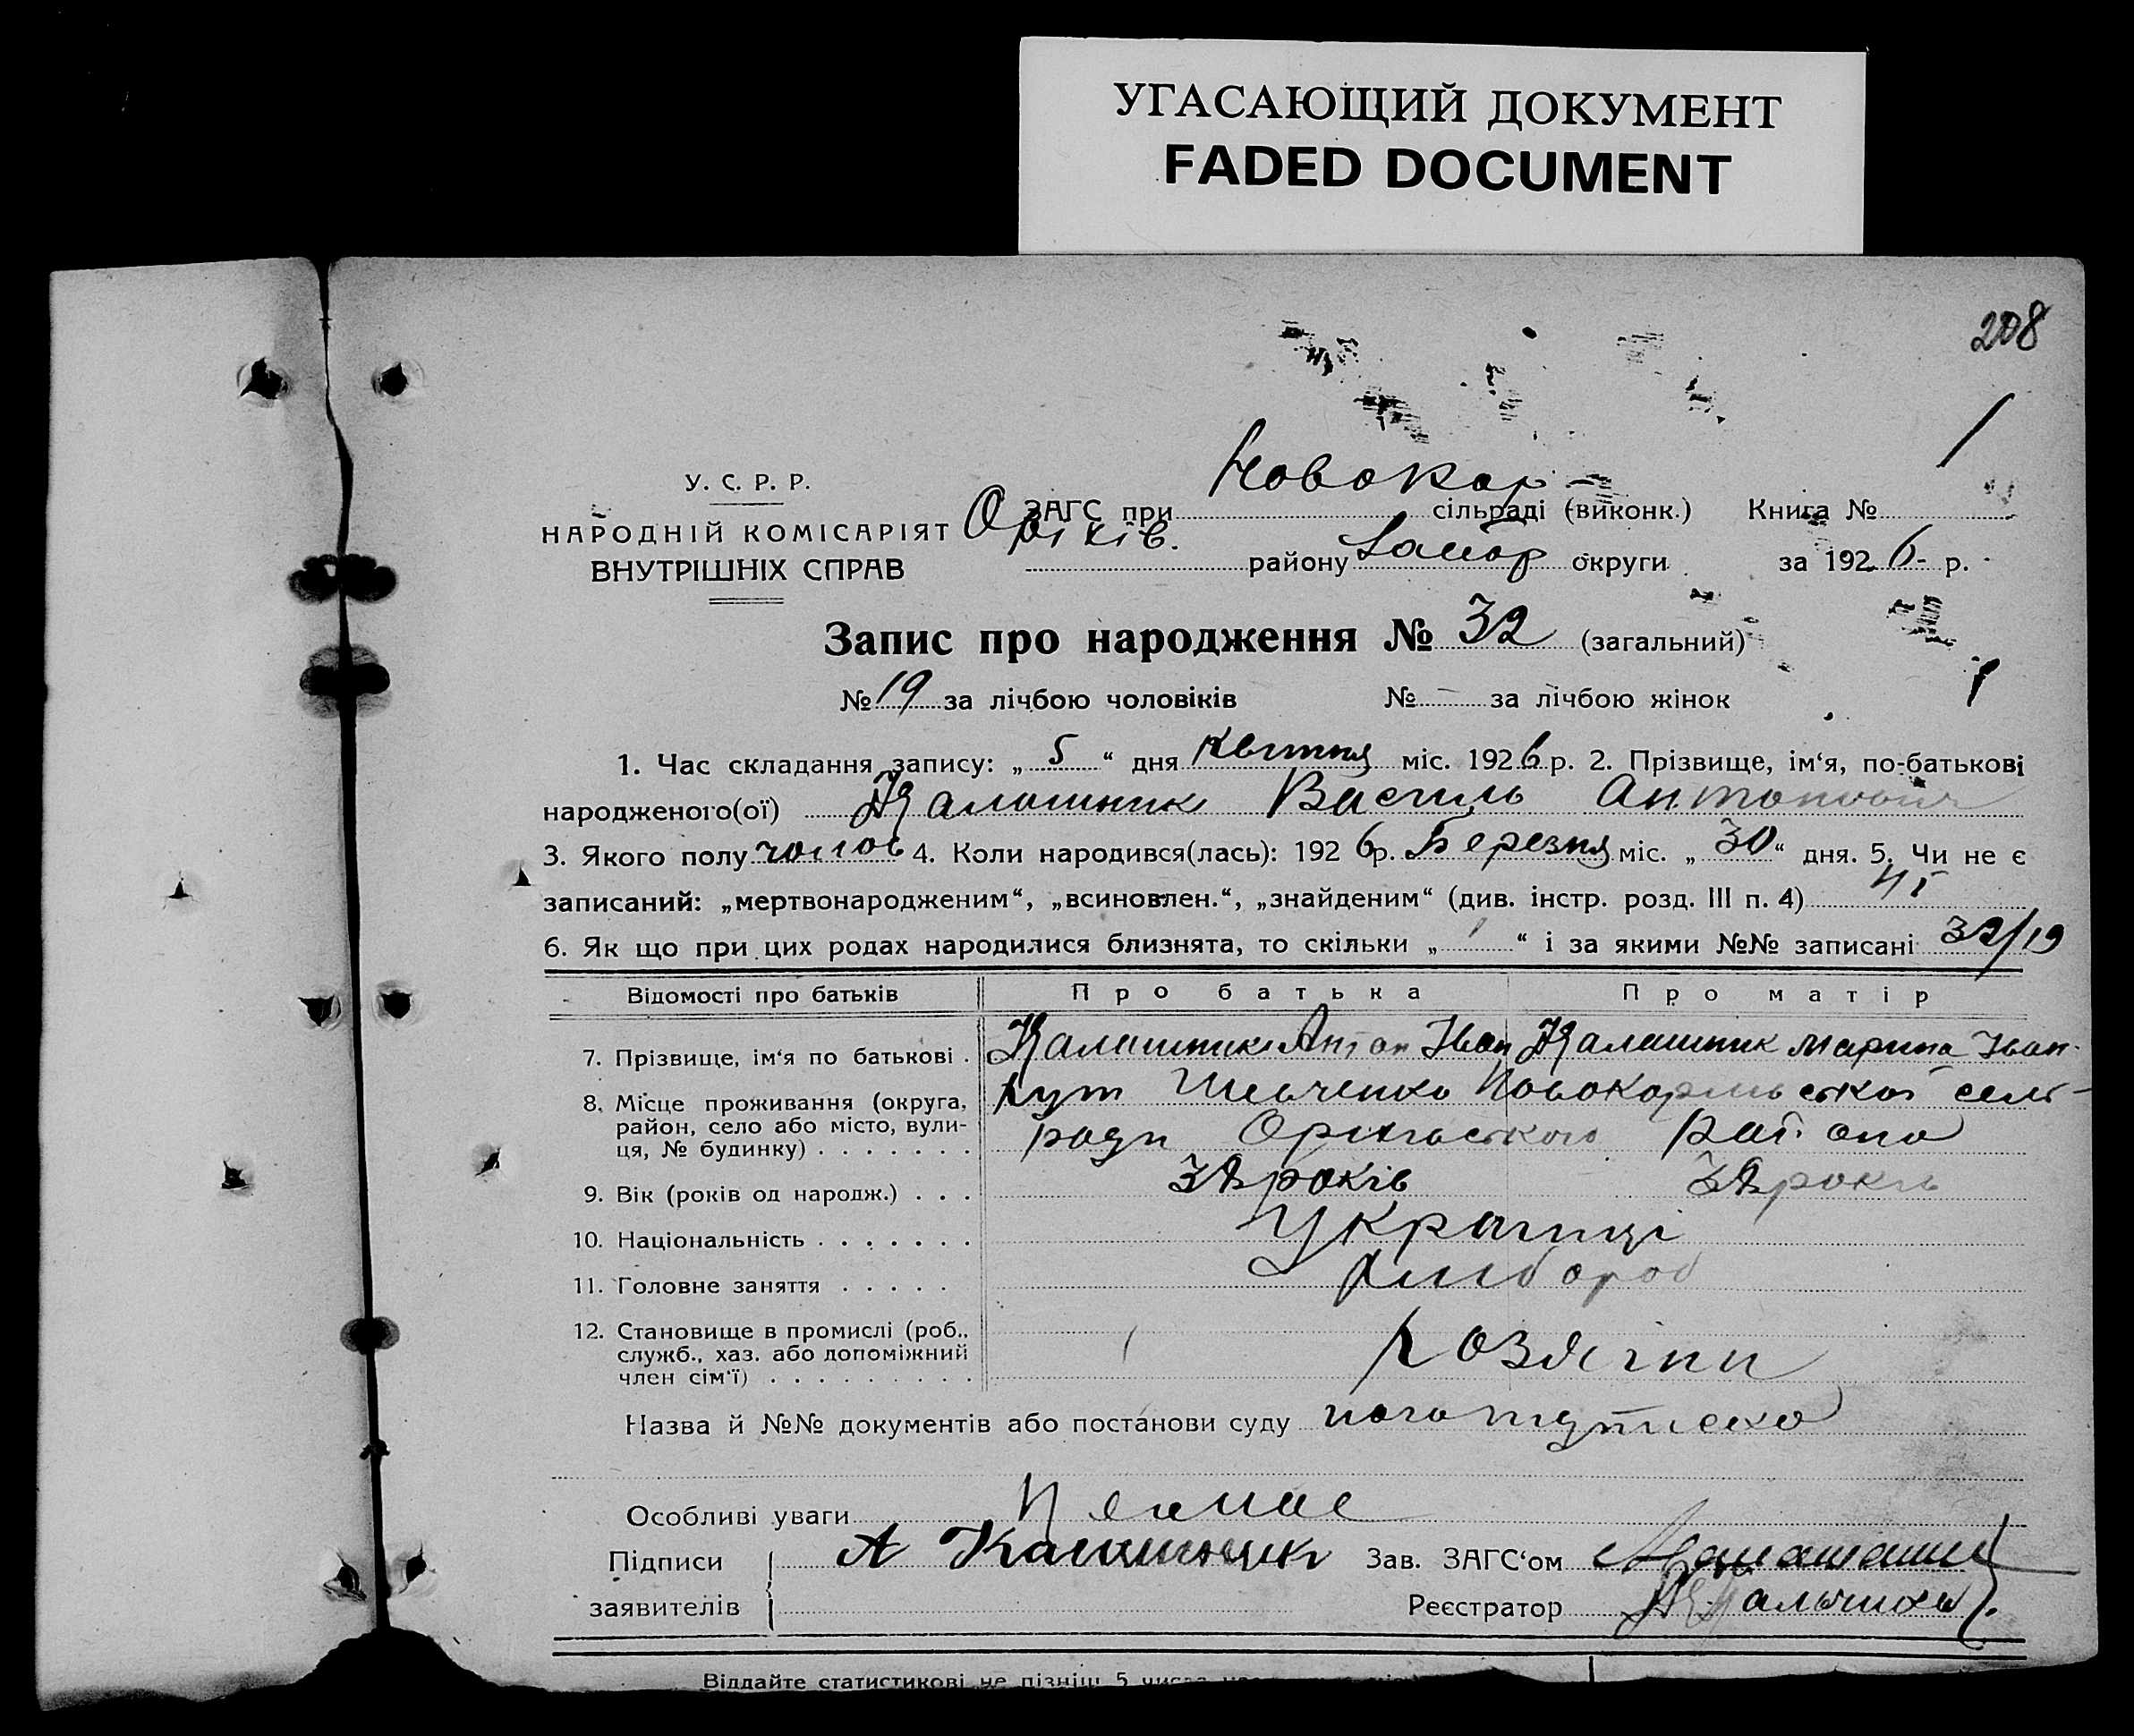 УГАСАЮЩИЙ ДОКУМЕНТ
FADED DOCUMENT
208
У. С. Р. Р.
НАРОДНІЙ КОМІСАРІЯТ
ВНУТРІШНІХ СПРАВ
ЗАГС при Новокар сільраді (виконк.) Книга № 1
Оріхів. району округи за 1926 р.
Запис про народження № 32 (загальний)
№ 19 за лічбою чоловіків № — за лічбою жінок
1. Час складання запису: „ 5 “ дня Квітня міс. 1926 р. 2. Прізвище, ім‘я, по-батькові
народженого(ої) Калашник Василь Антонович
3. Якого полу чолов 4. Коли народився(лась): 1926 р. Березня міс. „ 30 “ дня. 5. Чи не є
записаний: „мертвонародженим“, „всиновлен.“, „знайденим“ (див. інстр. розд. III п. 4) ні
6. Як що при цих родах народилися близнята, то скільки „ “ і за якими №№ записані 32/19
Відомості про батьків Про батька Про матір
7. Прізвище, ім‘я по батькові . Калашник Антон Іван Калашник Марина Іван.
8. Місце проживання (округа, хут Шевченко сель-
район, село або місто, вули- ради Оріхівського Району
ця, № будинку) . . . . . . .
9. Вік (років од народж.) . . . років років
10. Національність . . . . . . . Українці
11. Головне заняття . . . . . Хлібороб
12. Становище в промислі (роб.,
служб., хаз. або допоміжний Хозяїни
член сім‘ї) . . . . . . . . .
Назва й №№ документів або постанови суду
Особливі уваги Немає
Підписи А Калашник Зав. ЗАГС‘ом
заявителів Реєстратор
Віддайте статистикові не пізніш 5 числа